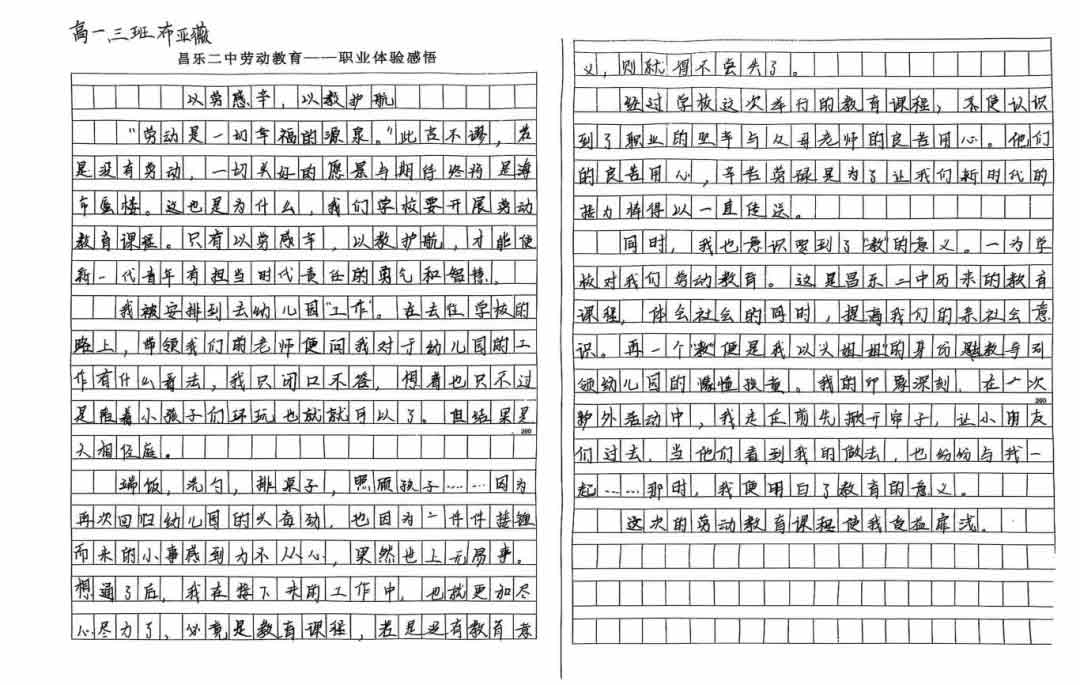 高一.三班.布亚薇
昌乐二中劳动教育——职业体验感悟
以劳感辛，以教护航
“劳动是一切幸福的源泉。”此言不谬，若
是没有劳动，一切美好的愿景与期待终将是海
市蜃楼。这也是为什么，我们学校要开展劳动
教育课程。只有以劳感辛，以教护航，才能使
新一代青年有担当时代责任的勇气和
我被安排到去幼儿园“工作”。在去往学校的
路上，带领我们的老师便问我对于幼儿园的工
作有什么看法，我只闭口不答，想着也只不过
是陪着小孩子们玩也就就可以了。但结果是
大相径庭。
端饭，洗勺，排桌子，照顾孩子……因为
再次回归幼儿园的兴奋劲，也因为一件件接踵
而来的小事感到力不从心，果然世上无易事。
想通了后，我在接下来的工作中，也就更加尽
心尽力了，必竟是教育课程，若是没有教育意
200
义，则就得不尝失了。
经过学校这次举行的教育课程，不使认识
到了职业的坚辛与父母老师的良苦用心。他们
的良苦用心，辛苦劳碌是为了让我们新时代的
接力棒得以一直传送。
同时，我也意识到了“教”的意义。一为学
校对我们劳动教育。这是昌乐二中历来的教育
课程，体会社会的同时，提高我们的亲社会意
识。再一个“教”便是我以大姐姐的身份教导引
领幼儿园的懵懂孩童。我的印象深刻，在一次
户外活动中，我走在前先掀开帘子，让小朋友
们过去，当他们看到我的做法，也纷纷与我一
起……那时，我便明白了教育的意义。
这次的劳动教育课程使我受益
200